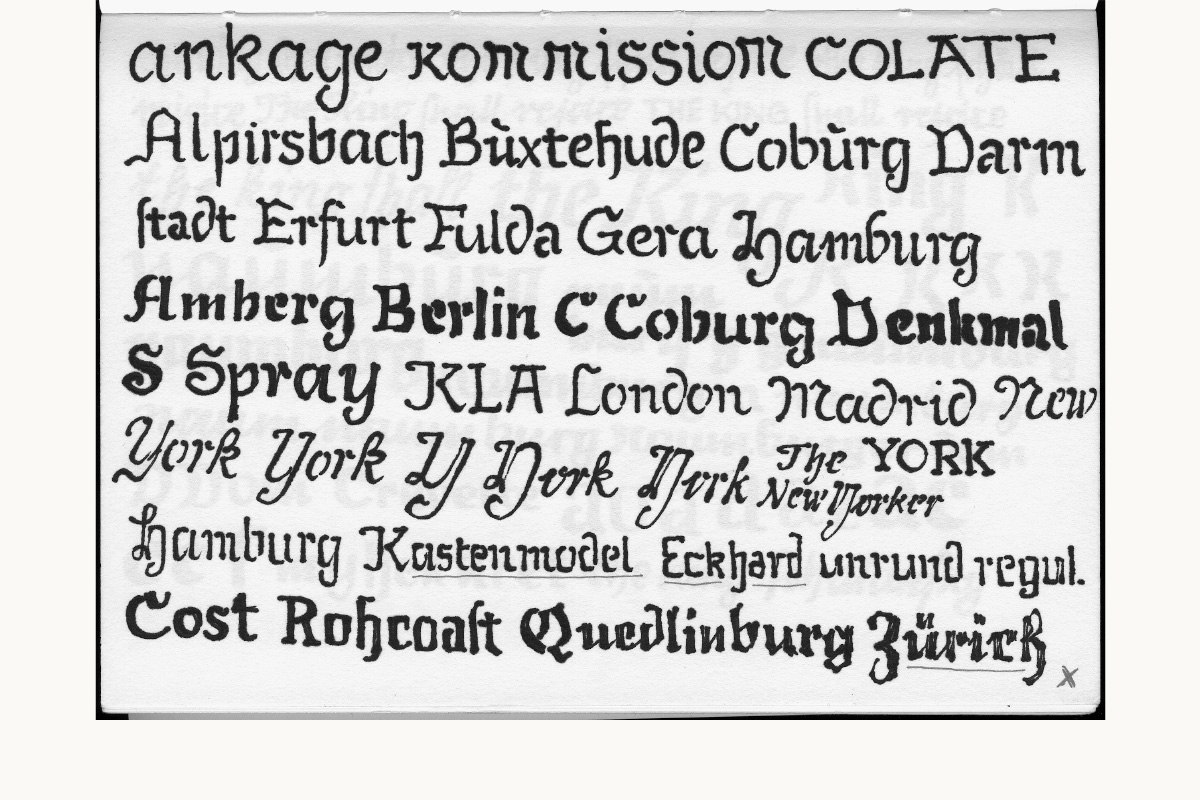 ankage kommission COLATE
Alpirsbach Bùxtehude Cobūrg Darm
ſtadt Erfurt Fulda Gera Hamburg
Amberg Berlin C Coburg Denkmal
S Spray KLA London Madrid New
York York Y York York The YORK
New Yorker
Hamburg Kastenmodel Eckhard unrund regul.
Cost Rohcoaſt Quedlinburg Zürich
x